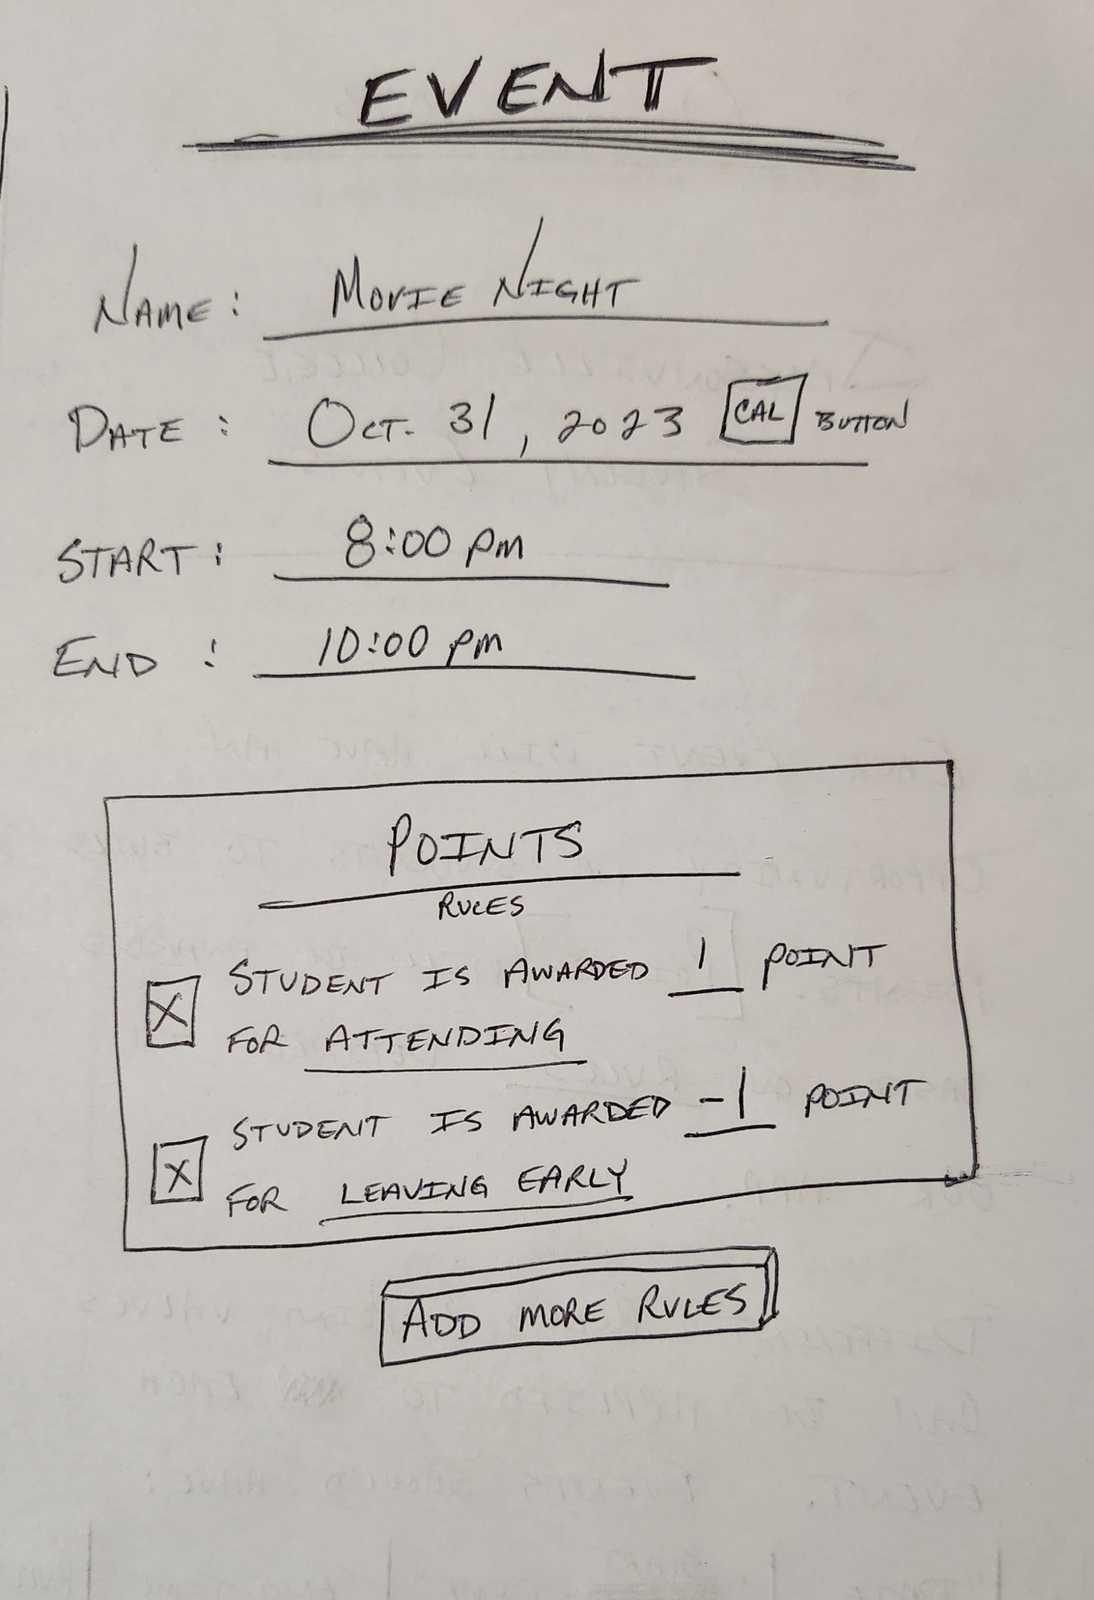 EVENT
NAME: MOVIE NIGHT
DATE: OCT. 31, 2023 CAL BUTTON
START: 8:00 pm
END: 10:00 pm
POINTS
RULES
X STUDENT IS AWARDED 1 POINT
FOR ATTENDING
X STUDENT IS AWARDED -1 POINT
FOR LEAVING EARLY
ADD MORE RULES